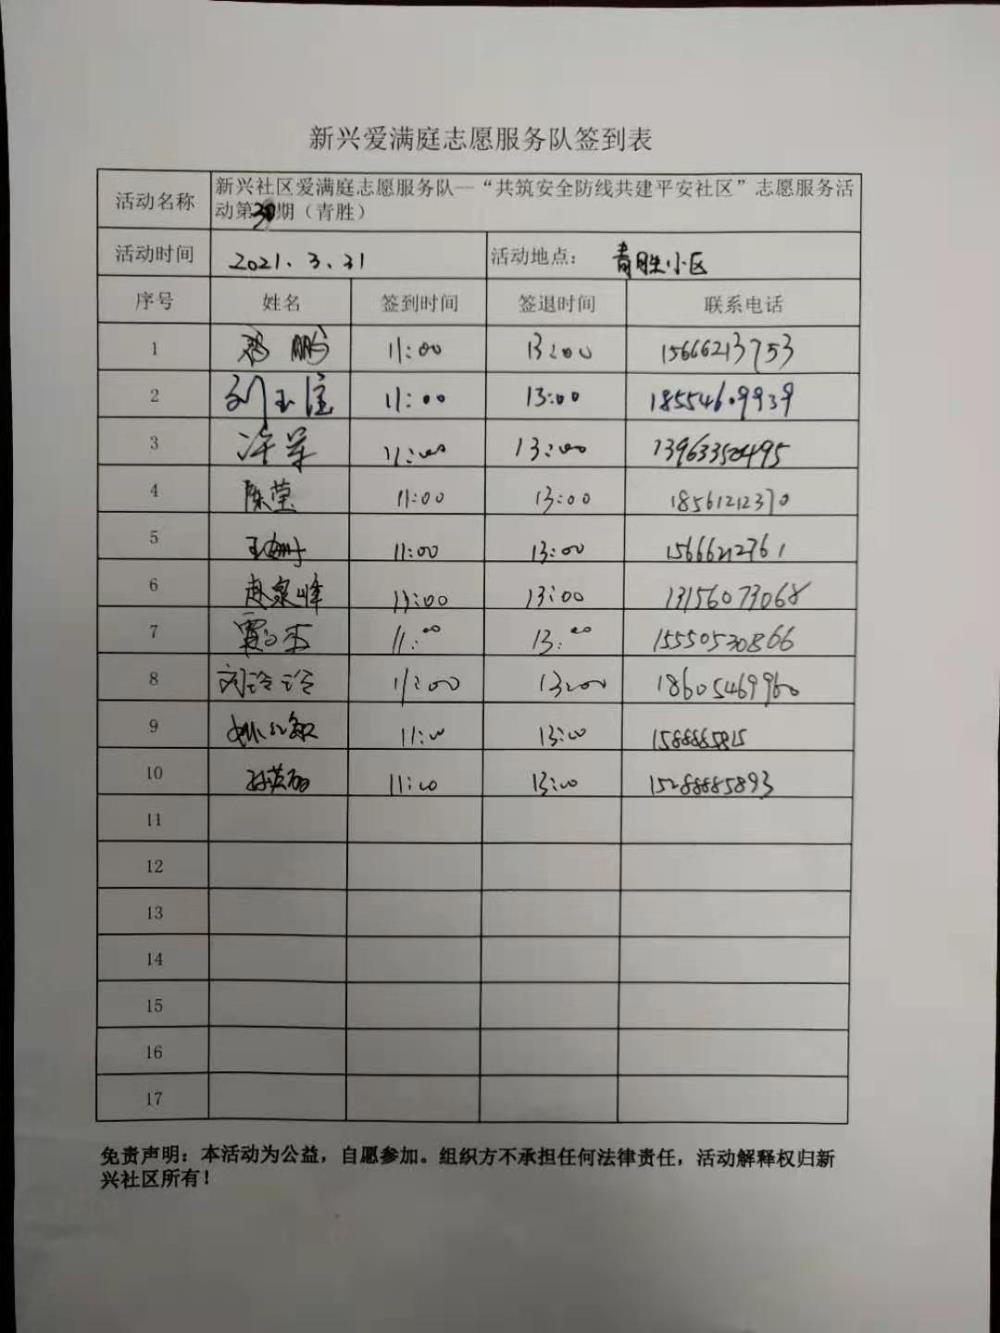 新兴爱满庭志愿服务队签到表
活动名称 新兴社区爱满庭志愿服务队—“共筑安全防线共建平安社区”志愿服务活
动第期（青胜）
活动时间 2021.3.31 活动地点： 青胜小区
序号 姓名 签到时间 签退时间 联系电话
1 鹏 11:00 13:00 15666213753
2 刘玉 11:00 13:00 18554609939
3 许军 11:00 13:00 13963350495
4 陈莹 11:00 13:00 18561212370
5 王姗 11:00 13:00 15666212761
6 赵泉峰 11:00 13:00 13156073068
7 11:00 13:00 15550530866
8 刘玲玲 11:00 13:00 18605469960
9 11:00 13:00
10 孙英丽 11:00 13:00 15288885893
11
12
13
14
15
16
17
免责声明：本活动为公益，自愿参加。组织方不承担任何法律责任，活动解释权归新
兴社区所有！